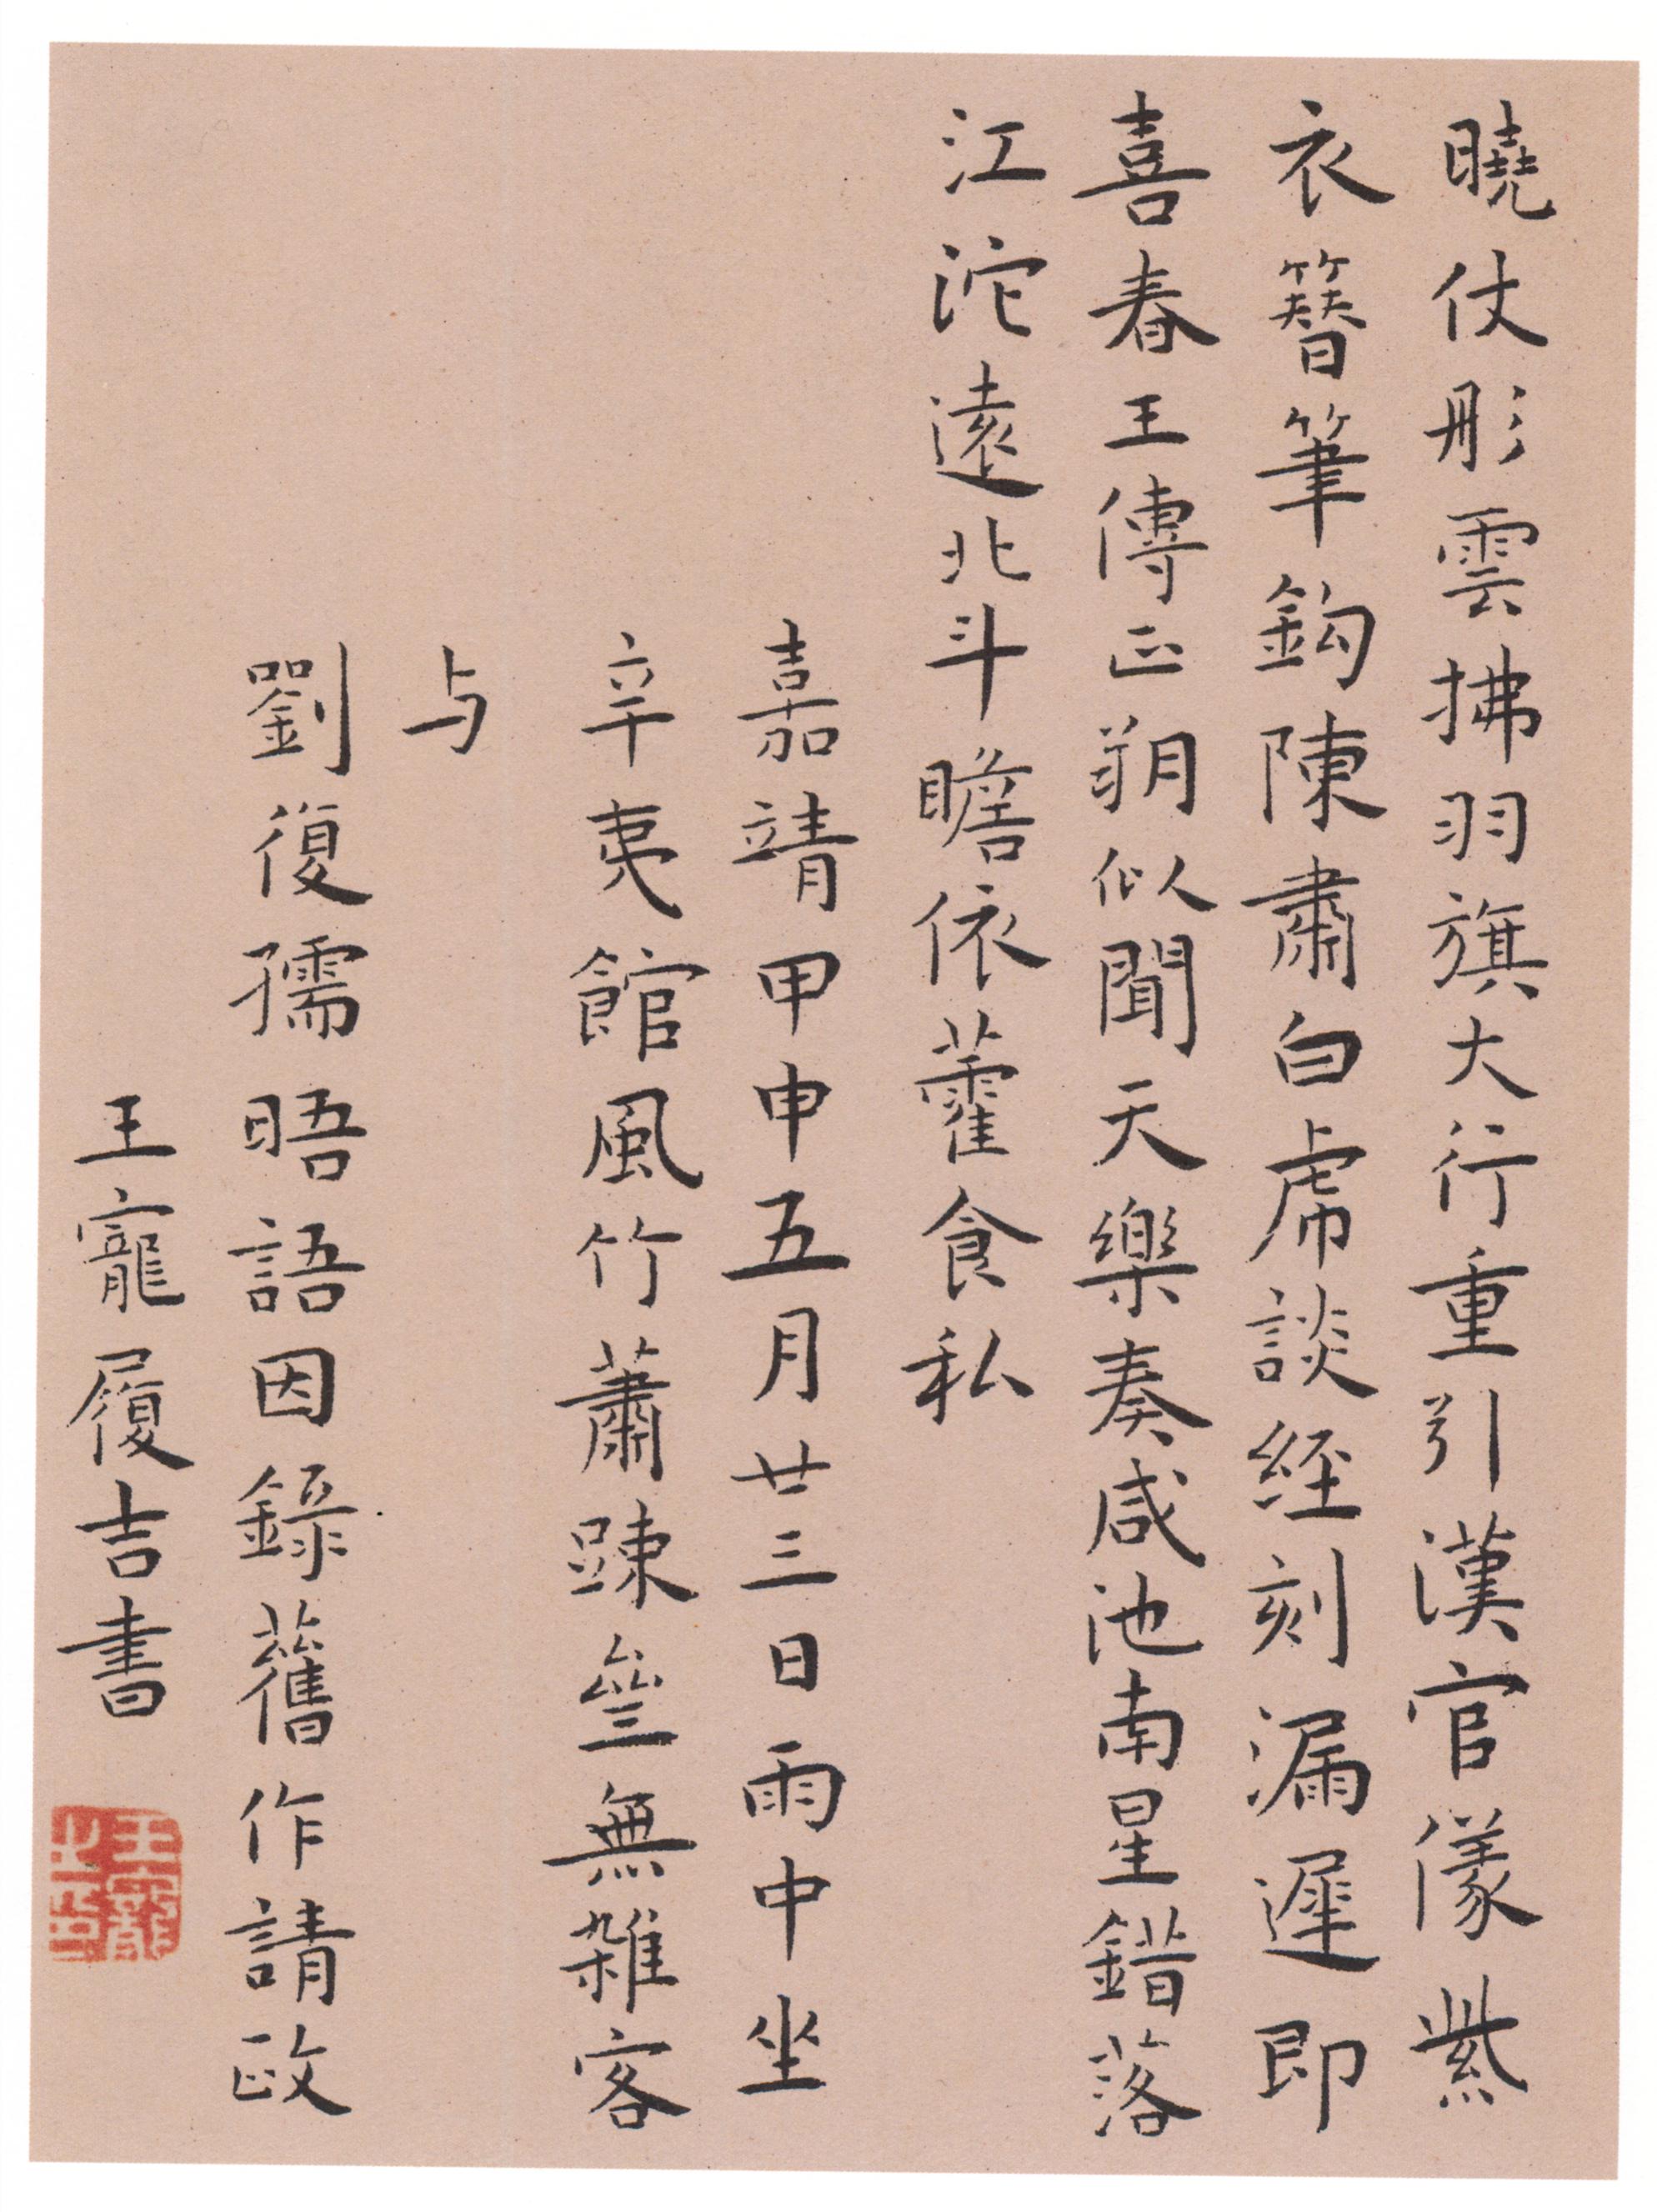 曉仗彤雲拂羽旗大行重引漢官儀紫
衣簪筆鈎陳肅白虎談經刻漏遲即
喜春王傳正朔似聞天樂奏咸池南星錯落
江沱遠北斗瞻依藿食私
嘉靖甲申五月廿三日雨中坐
辛夷館風竹蕭踈坐無雜客
与
劉復孺晤語因錄舊作請政
王寵履吉書
王寵之印